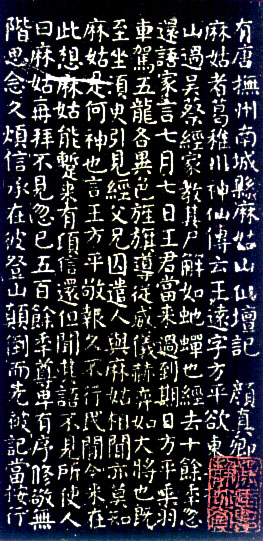 有唐撫州南城縣麻姑山仙壇記 顏真卿
麻姑者葛稚川神仙傳云王遠字方平欲東
山過吳蔡經家教其尸解如蛇蟬也經去十餘秊忽
還語家言七月七日王君當來過到期日方平乘羽
車駕五龍各異色旌旗導從威儀赫弈如大將也既
至坐須臾引見經父兄因遣人與麻姑相聞亦莫知
麻姑是何神也言王方平敬報久不行民間今來在
此想麻姑能蹔來有頃信還但聞其語不見所使人
曰麻姑再拜不見忽已五百餘秊尊卑有序修敬無
階思念久煩信承在彼登山顛倒而先被記當按行